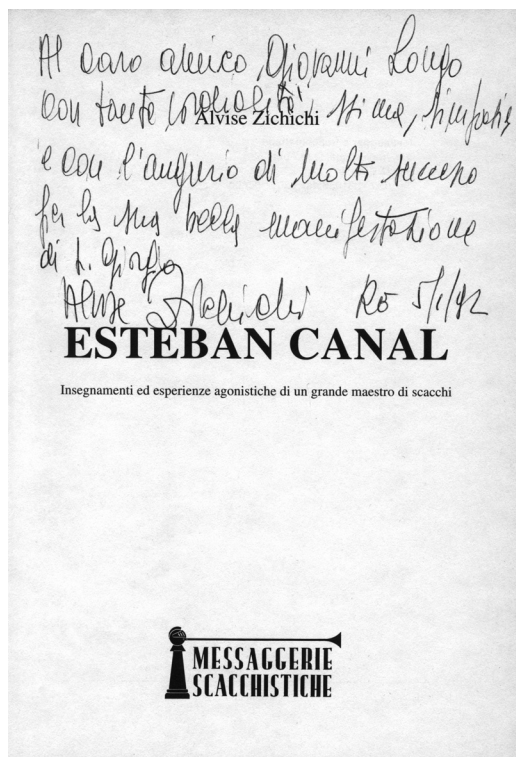 Al caro amico, Giovanni Longo
con tante cordialità, stima, simpatia
Alvise Zichichi
e con l'augurio di molto successo
per la sua bella manifestazione
di S. Giorgio
Alvise Zichichi Re 5/1/92
ESTEBAN CANAL
Insegnamenti ed esperienze agonistiche di un grande maestro di scacchi
MESSAGGERIE
SCACCHISTICHE